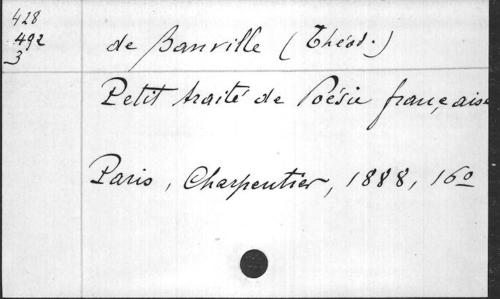 428
492
3
de Banville (Théod.)
Petit traité de Poésie française
Paris, Charpentier, 1888, 16º